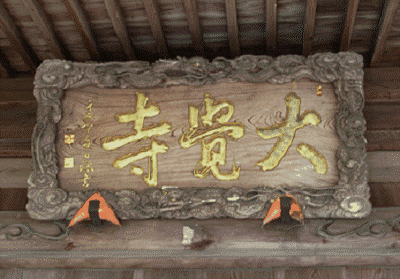 大覺寺